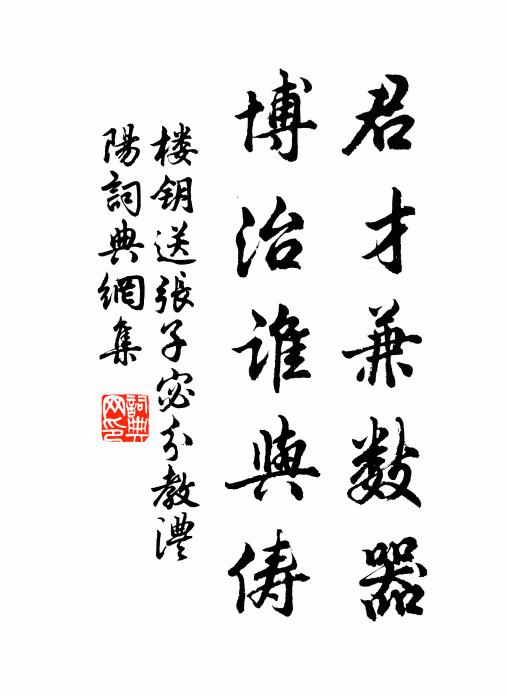 君才兼数器
博治谁與俦
楼钥送張子宓分教澧
陽詞典網集
詞典网印